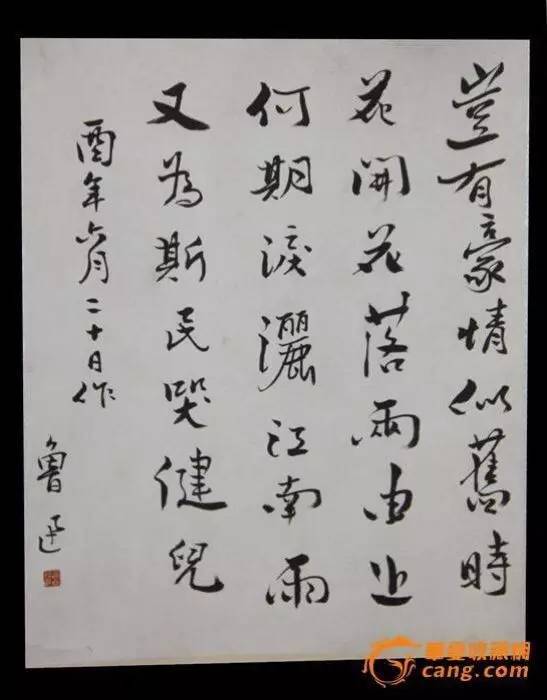 豈有豪情似舊時
花開花落兩由止
何期淚灑江南雨
又為斯民哭健兒
酉年六月二十日作
魯迅
華夏收藏網
cang.com